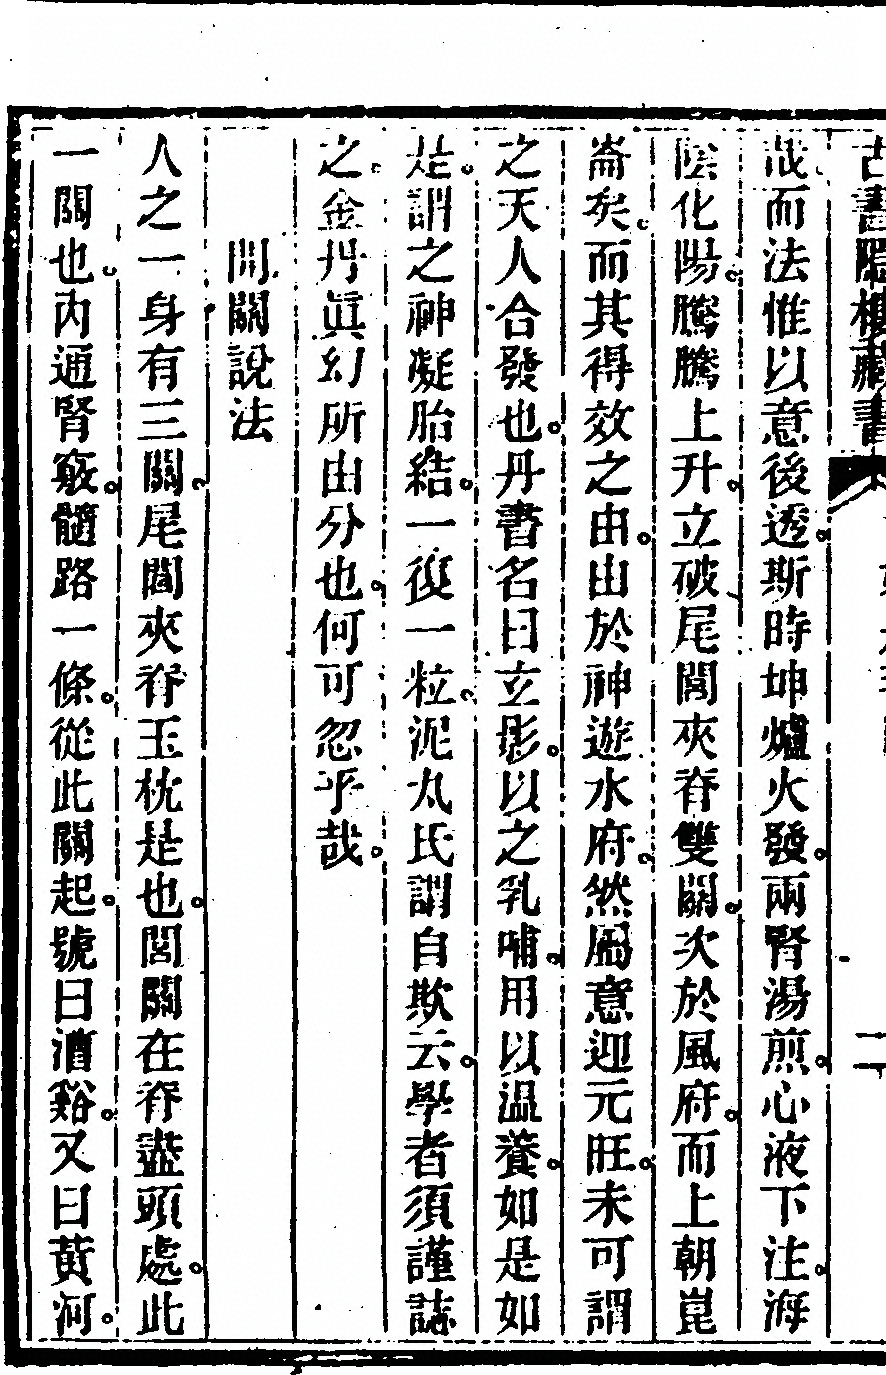 古書隱樓藏書
二
哉而法惟以意後透。斯時坤爐火發。兩腎湯煎。心液下注。海
陰化陽。騰騰上升。立破尾閭夾脊雙關。次於風府。而上朝崑
崙矣。而其得效之由。由於神遊水府。然屬意迎元旺。未可謂
之天人合發也。丹書名曰立影。以之乳哺。用以温養。如是如
是。謂之神凝胎結。一復一粒。泥丸氏謂自欺云。學者須謹誌
之。金丹眞幻所由分也。何可忽乎哉。
開關說法
人之一身有三關。尾閭夾脊玉枕是也。閭關在脊盡頭處。此
一關也。內通腎竅。髓路一條。從此關起。號曰漕谿。又曰黃河。